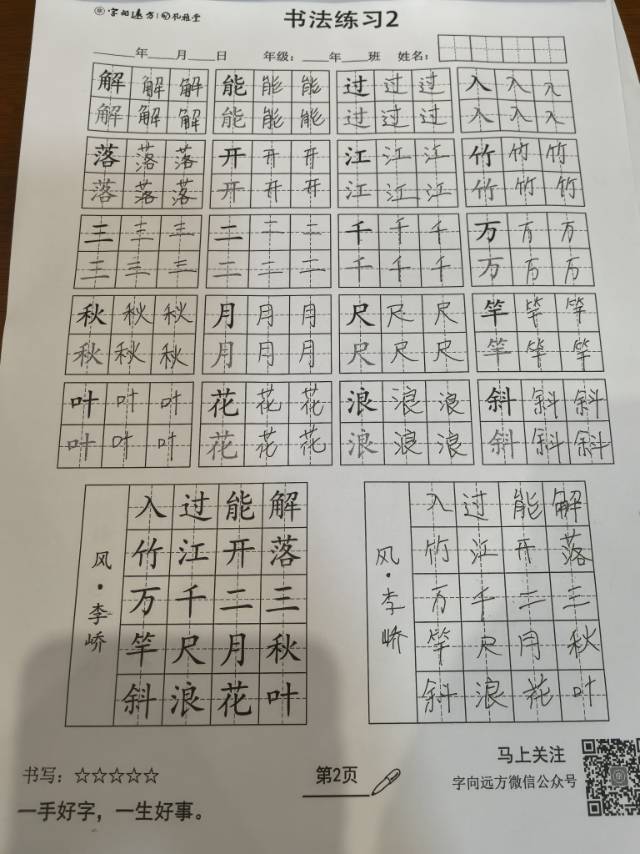 字向远方 | 书法练习2
____年____月____日 年级：____年____班 姓名：
解解解 能能能 过过过 入入入
解解解 能能能 过过过 入入入
落落落 开开开 江江江 竹竹竹
落落落 开开开 江江江 竹竹竹
三三三 二二二 千千千 万万万
三三三 二二二 千千千 万万万
秋秋秋 月月月 尺尺尺 竿竿竿
秋秋秋 月月月 尺尺尺 竿竿竿
叶叶叶 花花花 浪浪浪 斜斜斜
叶叶叶 花花花 浪浪浪 斜斜斜
风·李峤
入过能解
竹江开落
万千二三
竿尺月秋
斜浪花叶
风·李峤
入过能解
竹江开落
万千二三
竿尺月秋
斜浪花叶
书写：☆☆☆☆☆
一手好字，一生好事。
第2页
马上关注
字向远方微信公众号